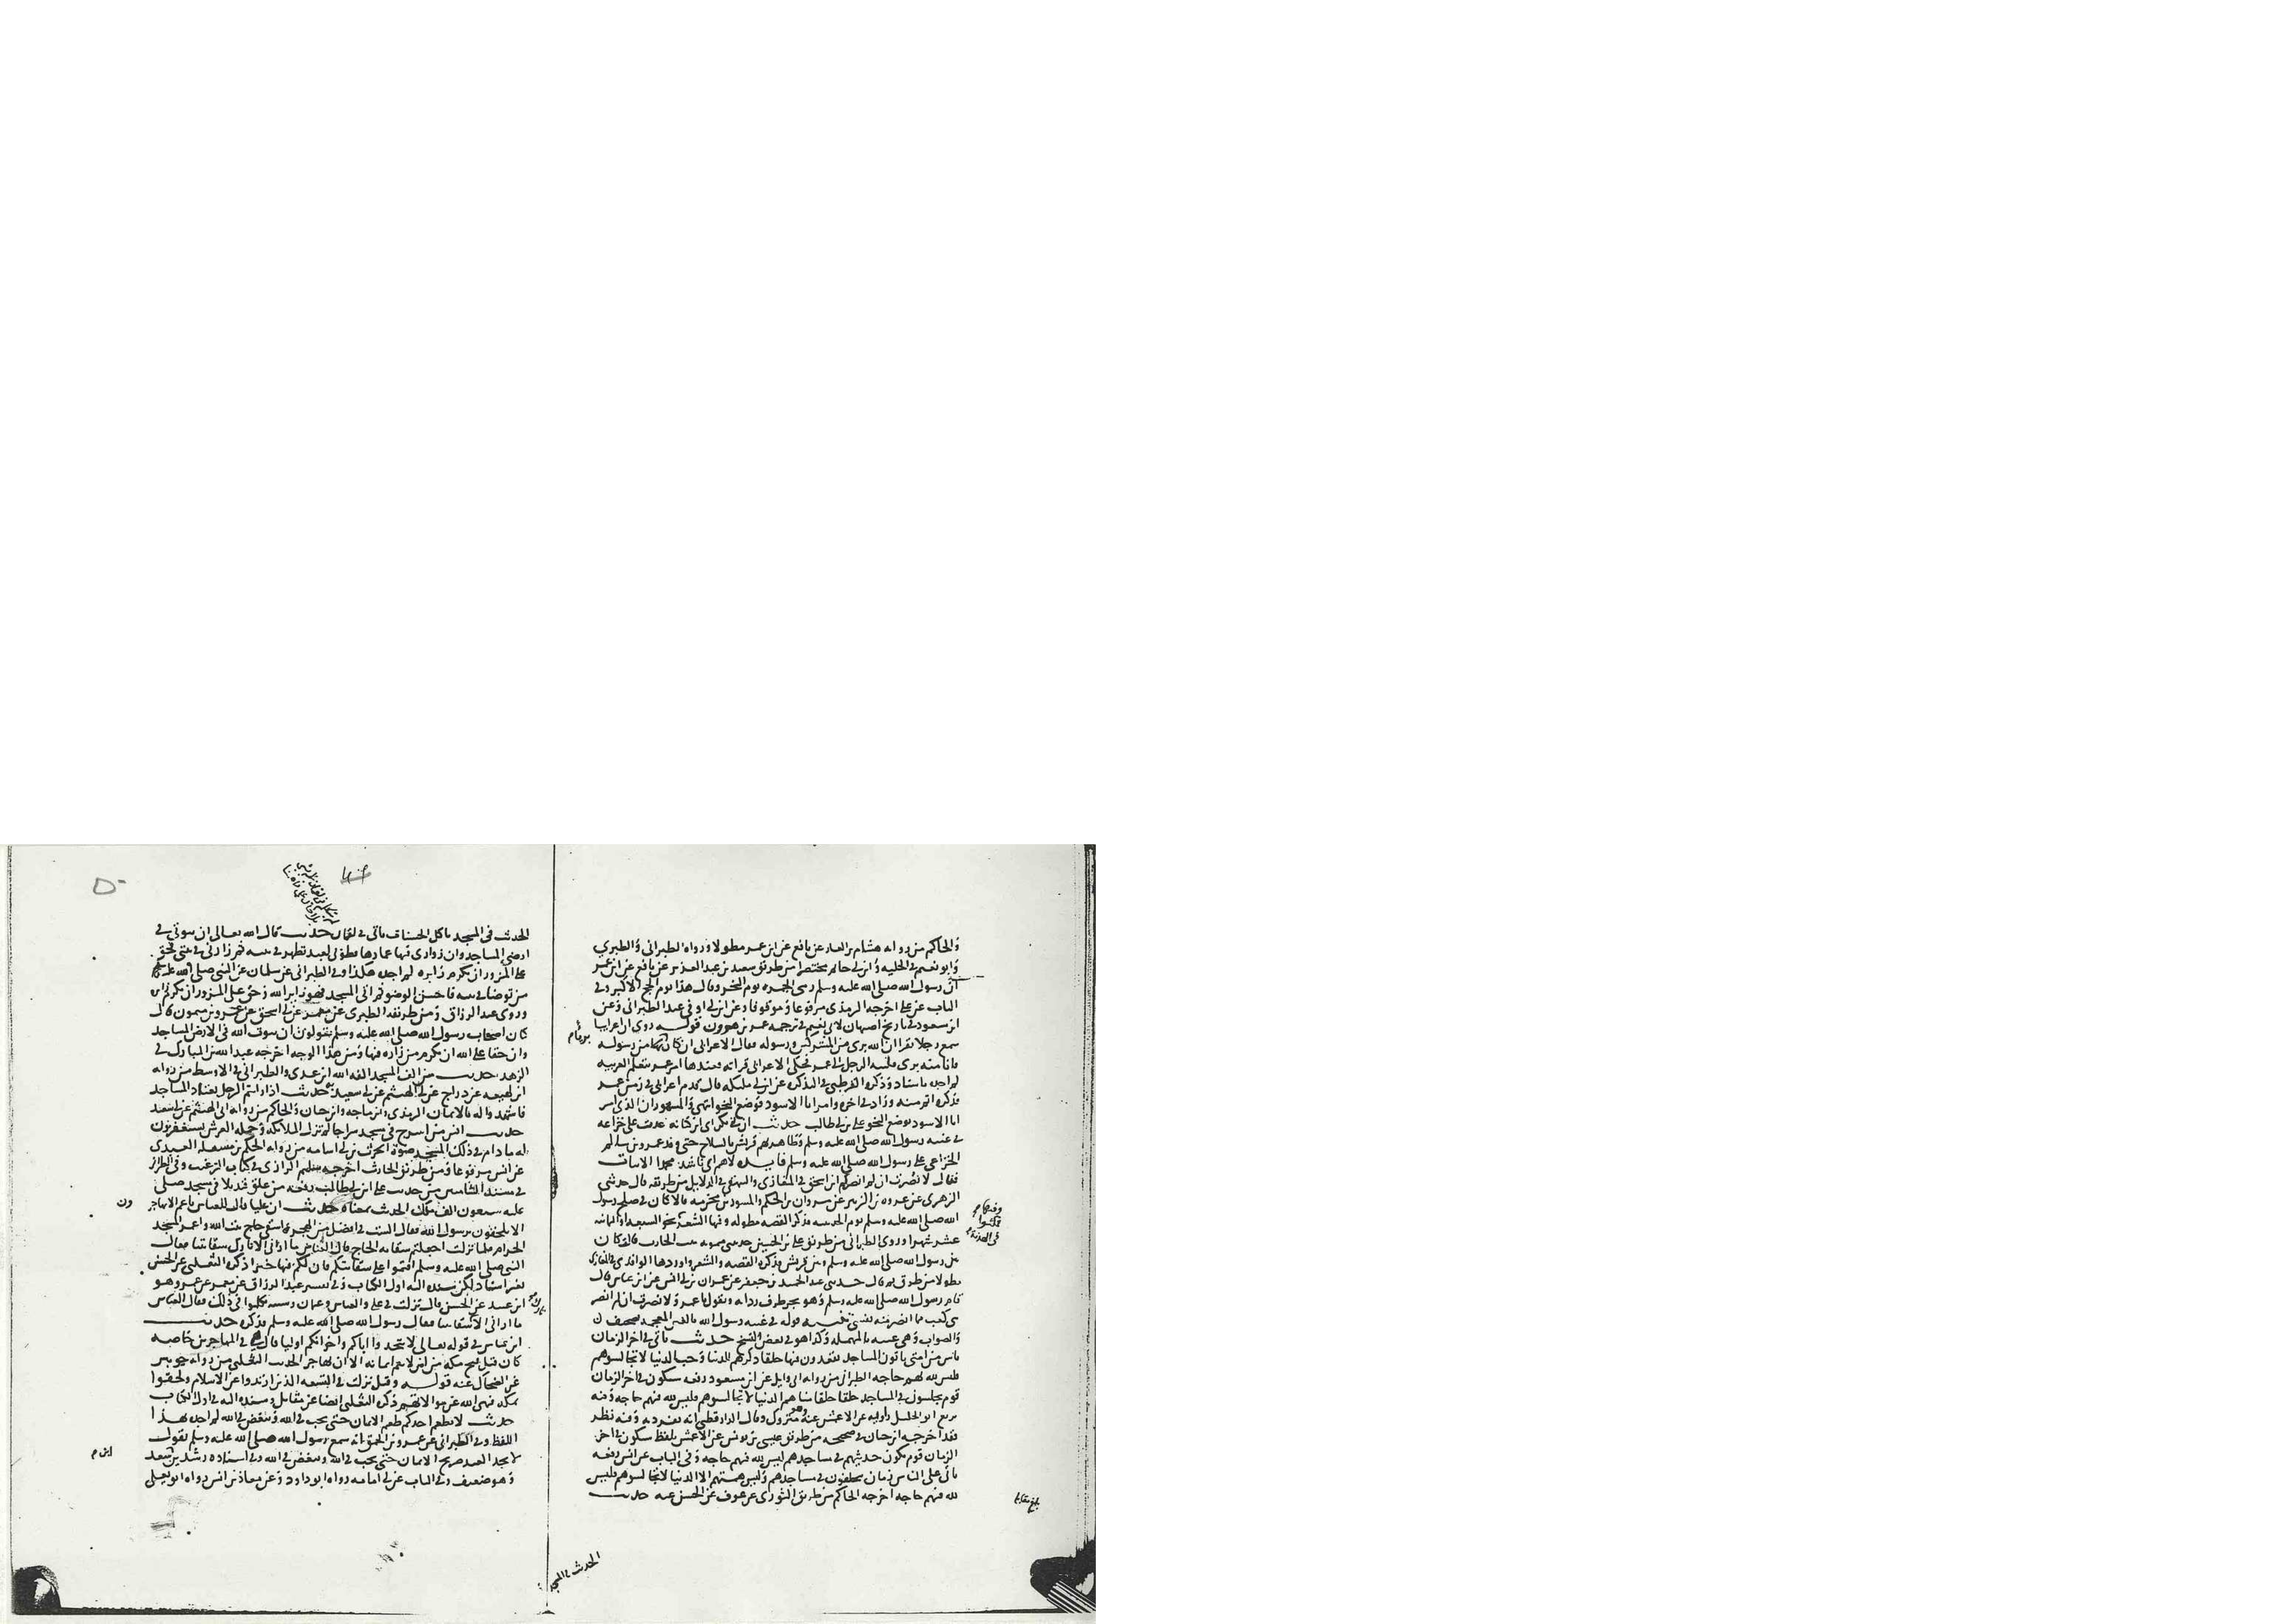 والحاكم من رواية هشام بن الغاز عن نافع عن ابن عمر مطولا ورواه الطبراني والطبري
وابو نعيم في الحلية وابن ابي حاتم مختصرا من طريق سعيد بن عبد العزيز عن نافع عن ابن عمر
ان رسول الله صلى الله عليه وسلم رمى الجمرة يوم النحر وقال هذا يوم الحج الاكبر وفي
الباب عن علي اخرجه الترمذي مرفوعا وموقوفا وعن ابن ابي اوفى عند الطبراني وعن
ابن مسعود في تاريخ اصبهان لابي نعيم في ترجمة عمر بن هرون قوله روى ان اعرابيا
سمع رجلا يقرا ان الله بري من المشركين ورسوله فقال الاعرابي ان كان الله من رسوله
فانا منه بري فلببه الرجل الى عمر فحكى الاعرابي قراته فعندها امر عمر بتعلم العربية
لم اجده باسناد وذكره القرطبي في التذكرة عن ابن ابي مليكة قال قدم اعرابي في زمن عمر
فذكره اتم منه وزاد في اخره وامر ابا الاسود فوضع النحو انتهى والمشهور ان الذي امر
ابا الاسود بوضع النحو علي بن ابي طالب حديث ان بني بكر اي ابن كنانة عدت على خزاعة
في غيبة رسول الله صلى الله عليه وسلم وظاهرتهم قريش بالسلاح حتى وفد عمرو بن سالم
الخزاعي على رسول الله صلى الله عليه وسلم فانشده لاهم اي ناشد محمدا الابيات
فقال لا نصرت ان لم انصركم ابن اسحق في المغازي والبيهقي في الدلايل من طريقه قال حدثني
الزهري عن عروة بن الزبير عن مروان بن الحكم والمسور بن مخرمة قالا كان في صلح رسول
الله صلى الله عليه وسلم يوم الحديبية فذكر القصة مطولة وفيها الشعر نحو السبعة او الثمانية
عشر شهرا وروى الطبراني من طريق علي بن الحسين حدثتني ميمونة بنت الحارث قالت كان
بين رسول الله صلى الله عليه وسلم وبين قريش فذكره القصة والشعر واوردها الواقدي في المغازي
مطولا من طرق منه قال حدثني عبد الحميد بن جعفر عن عمران بن ابي انس عن ابن عباس قال
قام رسول الله صلى الله عليه وسلم وهو يجر طرف رداه ويقول يا عمرو لا نصرت ان لم انصر
بني كعب مما انصر منه نفسي تنبيه قوله في غيبة رسول الله بالغين المعجمة تصحيف
والصواب وهي عيبة بالمهملة وكذا هو في بعض النسخ حديث ياتي في اخر الزمان
ناس من امتي ياتون المساجد يقعدون فيها حلقا ذكرهم الدنيا وحب الدنيا لا تجالسوهم
فليس لله بهم حاجة الطبراني من رواية ابي وايل عن ابن مسعود رفعه سيكون في اخر الزمان
قوم يجلسون في المساجد حلقا حلقا مناهم الدنيا لا تجالسوهم فليس لله فيهم حاجة وفيه
بزيع ابو الخليل راويه عن الاعمش عنه وهو متروك وقال الدارقطني انه تفرد به وفيه نظر
فقد اخرجه ابن حبان في صحيحه من طريق عيسى بن يونس عن الاعمش بلفظ سيكون في اخر
الزمان قوم يكون حديثهم في مساجدهم ليس لله فيهم حاجة وفي الباب عن انس رفعه
ياتي على الناس زمان يحلقون في مساجدهم وليس همتهم الا الدنيا لا تجالسوهم فليس
لله فيهم حاجة اخرجه الحاكم من طريق الثوري عن عوف عن الحسن عنه حديث
الحديث في المسجد
الحديث في المسجد ياكل الحسنات ياتي في لقمان حديث قال الله تعالى ان بيوتي في
ارضي المساجد وان زواري فيها عمارها فطوبى لعبد تطهر في بيته ثم زارني في بيتي فحق
على المزور ان يكرم زايره لم اجده هكذا وفي الطبراني عن سلمان عن النبي صلى الله عليه
من توضا في بيته فاحسن الوضو ثم اتى المسجد فهو زاير الله وحق على المزور ان يكرم زايره
وروى عبد الرزاق ومن طريقه الطبري عن معمر عن ابي اسحق عن عمرو بن ميمون قال
كان اصحاب رسول الله صلى الله عليه وسلم يقولون ان بيوت الله في الارض المساجد
وان حقا على الله ان يكرم من زاره فيها ومن هذا الوجه اخرجه عبد الله بن المبارك في
الزهد حديث من الف المسجد الفه الله ابن عدي والطبراني في الاوسط من رواية
ابن لهيعة عن دراج عن ابي الهيثم عن ابي سعيد به حديث اذا رايتم الرجل يعتاد المساجد
فاشهدوا له بالايمان الترمذي وابن ماجه وابن حبان والحاكم من رواية ابي الهيثم عن ابي سعيد
حديث انس من اسرج في مسجد سراجا لم تزل الملايكة وحملة العرش يستغفرون
له ما دام في ذلك المسجد ضوءه الحرث بن ابي اسامة من رواية الحكم بن مسقلة العبدي
عن انس مرفوعا ومن طريق الحارث اخرجه سليم الرازي في كتاب الترغيب وفي الطبراني
في مسند الشاميين من حديث علي ابن ابي طالب رفعه من علق قنديلا في مسجد صلى
عليه سبعون الف ملك الحديث بمعناه حديث ان عليا قال للعباس يا عم الا تهاجر
الا تلحقون برسول الله فقال الست في افضل من الهجرة اسقي حاج بيت الله واعمر المسجد
الحرام فلما نزلت اجعلتم سقاية الحاج قال العباس ما اراني الا تارك سقايتنا فقال
النبي صلى الله عليه وسلم اقيموا على سقايتكم فان لكم فيها خيرا ذكره الثعلبي عن الحسن
بغير اسناد لكن سنده اليه اول الكتاب وفي تفسير عبد الرزاق عن معمر عن عمرو هو
ابن عبيد عن الحسن قال نزلت في علي والعباس وعثمان وشيبة تكلموا في ذلك فقال العباس
ما اراني الا تارك سقايتنا فقال رسول الله صلى الله عليه وسلم فذكره حديث
ابن عباس في قوله تعالى لا تتخذوا اباكم واخوانكم اوليا قال هي في المهاجرين خاصة
كان قبل فتح مكة من امن لم يتم ايمانه الا ان يهاجر الحديث الثعلبي من رواية جويبر
عن الضحاك عنه قوله وقيل نزلت في التسعة الذين ارتدوا عن الاسلام ولحقوا
بمكة فنهى الله عن موالاتهم ذكره الثعلبي ايضا عن مقاتل وسنده اليه في اول الكتاب
حديث لا يطعم احدكم طعم الايمان حتى يحب في الله ويبغض في الله لم اجده بهذا
اللفظ وفي الطبراني عن عمرو بن الحمق انه سمع رسول الله صلى الله عليه وسلم يقول
لا يجد العبد صريح الايمان حتى يحب في الله ويبغض في الله وفي اسناده رشدين بن سعد
وهو ضعيف وفي الباب عن ابي امامة رواه ابو داود وعن معاذ بن انس رواه ابو يعلى